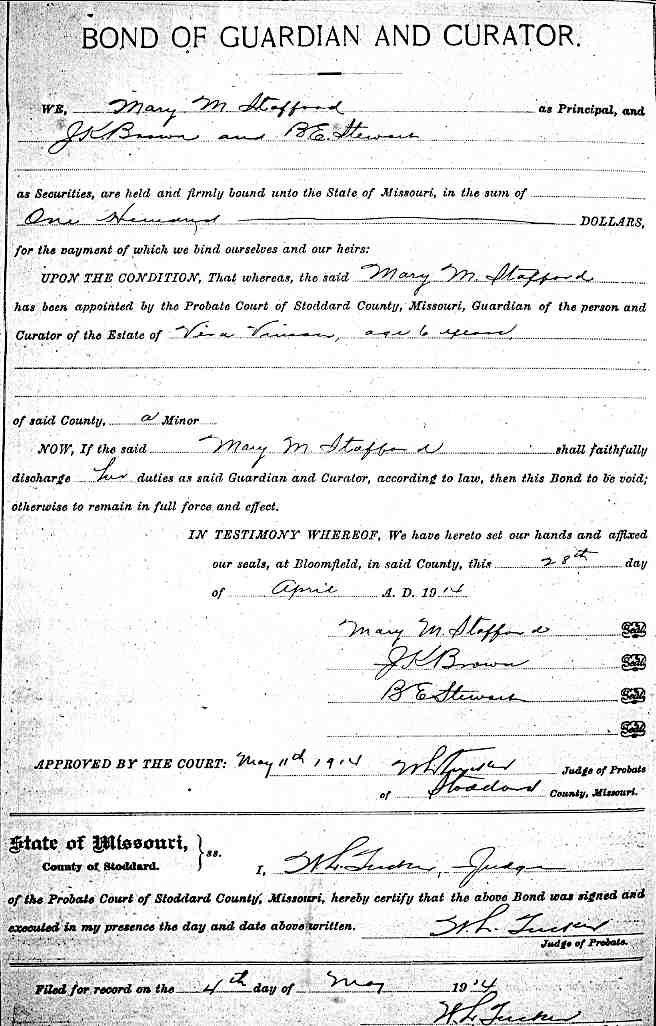 BOND OF GUARDIAN AND CURATOR.
WE, Mary M Stafford as Principal, and
J K Brown and B E Stewart
as Securities, are held and firmly bound unto the State of Missouri, in the sum of
One DOLLARS,
for the payment of which we bind ourselves and our heirs:
UPON THE CONDITION, That whereas, the said Mary M. Stafford
has been appointed by the Probate Court of Stoddard County, Missouri, Guardian of the person and
Curator of the Estate of Vera Vinson, age 6 years,
of said County, a Minor
NOW, If the said Mary M Stafford shall faithfully
discharge her duties as said Guardian and Curator, according to law, then this Bond to be void;
otherwise to remain in full force and effect.
IN TESTIMONY WHEREOF, We have hereto set our hands and affixed
our seals, at Bloomfield, in said County, this 28th day
of April A. D. 1914
Mary M. Stafford Seal
J K Brown Seal
B E Stewart Seal
Seal
APPROVED BY THE COURT: May 11th 1914 W L Tucker Judge of Probate
of Stoddard County, Missouri.
State of Missouri, } ss.
County of Stoddard.
I, W L Tucker, Judge
of the Probate Court of Stoddard County, Missouri, hereby certify that the above Bond was signed and
executed in my presence the day and date above written. W. L. Tucker
Judge of Probate.
Filed for record on the 4th day of May 1914
W L Tucker